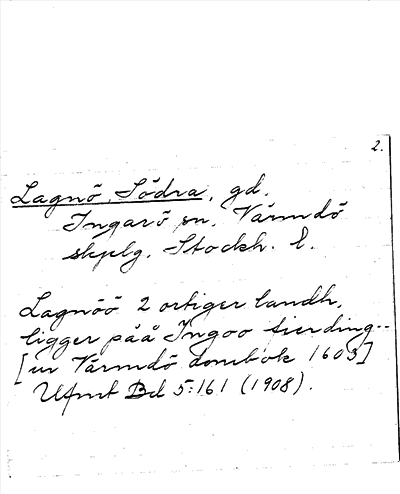 2.
Lagnö, Södra, gd.
Ingarö sn, Värmdö
skplg, Stockh. l.
Lagnöö 2 ortiger landh,
ligger påå Ingoo fierding--
[ur Värmdö dombok 1603]
Ufmt Bd 5:161 (1908).